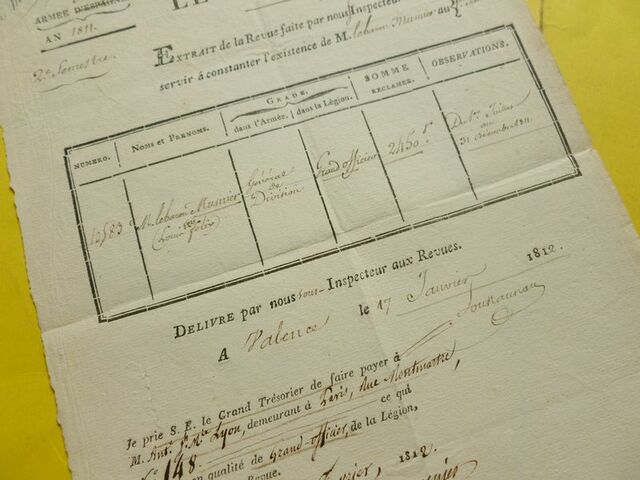 ARMÉE D'ESPAGNE
AN 1811.
2e Semestre
EXTRAIT de la Revue faite par nous Inspecteur
servir à constater l'existence de M. lebaron Musnier au
NUMERO.
NOMS ET PRENOMS.
GRADE.
dans l'Armée.
dans la Légion.
SOMME
RECLAMÉE.
OBSERVATIONS.
10583
M. lebaron Musnier
Louis félix
Général
de
Division
Grand officier
2450 f
Du 1er Juillet
au
31 décembre 1811
DELIVRÉ par nous sous-Inspecteur aux Revues.
A Valence le 17 Janvier 1812.
Je prie S. E. le Grand Trésorier de faire payer à
M. Ant. Lyon, demeurant à Paris, Rue Montmartre,
No. 148. ce qui
en qualité de Grand officier, de la Légion,
Revue.
1812